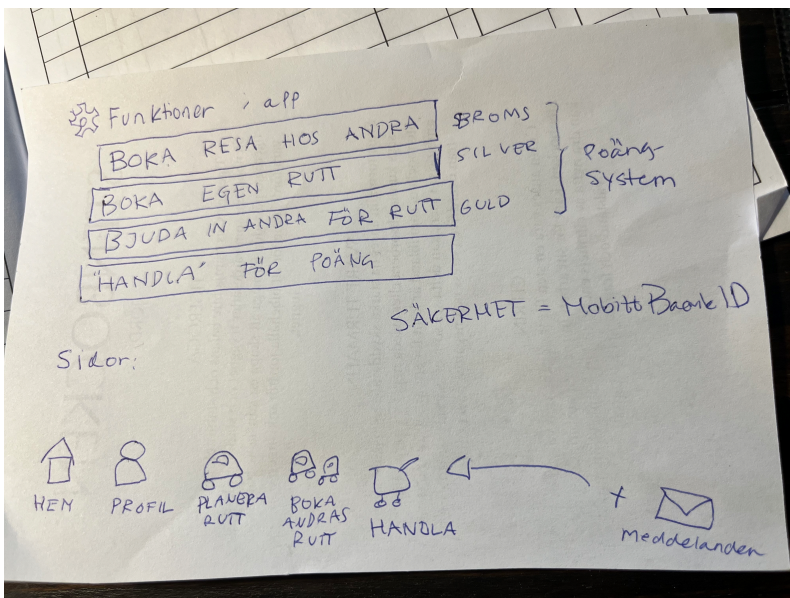 Funktioner i app
BOKA RESA HOS ANDRA
BOKA EGEN RUTT
BJUDA IN ANDRA FÖR RUTT
"HANDLA" FÖR POÄNG
BROMS
SILVER
GULD
Poäng-
system
SÄKERHET = Mobilt BankID
Sidor:
HEM
PROFIL
PLANERA
RUTT
BOKA
ANDRAS
RUTT
HANDLA
+
Meddelanden